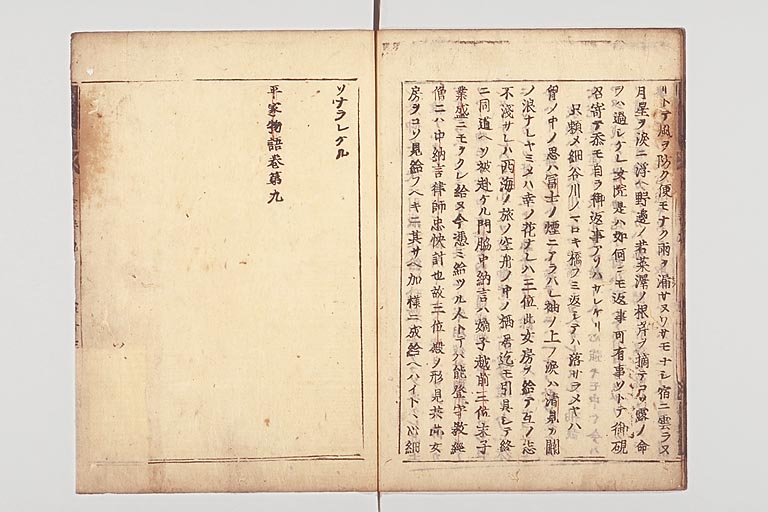 リトテ風ヲ防ク便モナク雨ヲ漏サヌワサモナシ宿ニ雲ラヌ
月星ヲ涙ニ浮ヘ野邊ノ若菜澤ノ根芹ヲ摘テコソ露ノ命
ヲハ過シケレ女院是ハ如何ニモ返事可有事ソトテ御硯
召寄テ忝モ自ラ御返事アリハサレケリ
只頼メ細谷川ノマロキ橋フミ返シテハ落サラメヤハ
胷ノ中ノ思ハ冨士ノ煙ニアラハレ袖ノ上ノ涙ハ清見カ關
ノ浪ナレヤミメハ幸ノ花ナレハ三位此女房ヲ給テ互ノ志
不淺サレハ西海ノ旅ノ空舟ノ中ノ栖居迄モ引具シテ終
ニ同道ヘソ被趣ケル門脇中納言ハ嫡子越前三位末子
業盛ニモヲクレ給ヌ今憑ミ給ツル人トテハ能登守教經
僧ニハ中納言律師忠快計也故三位殿ノ形見共此女
房ヲコソ見給フヘキニ其サヘ加様ニ成給ヘハイトヽ心細
ソナラレケル
平家物語巻第九